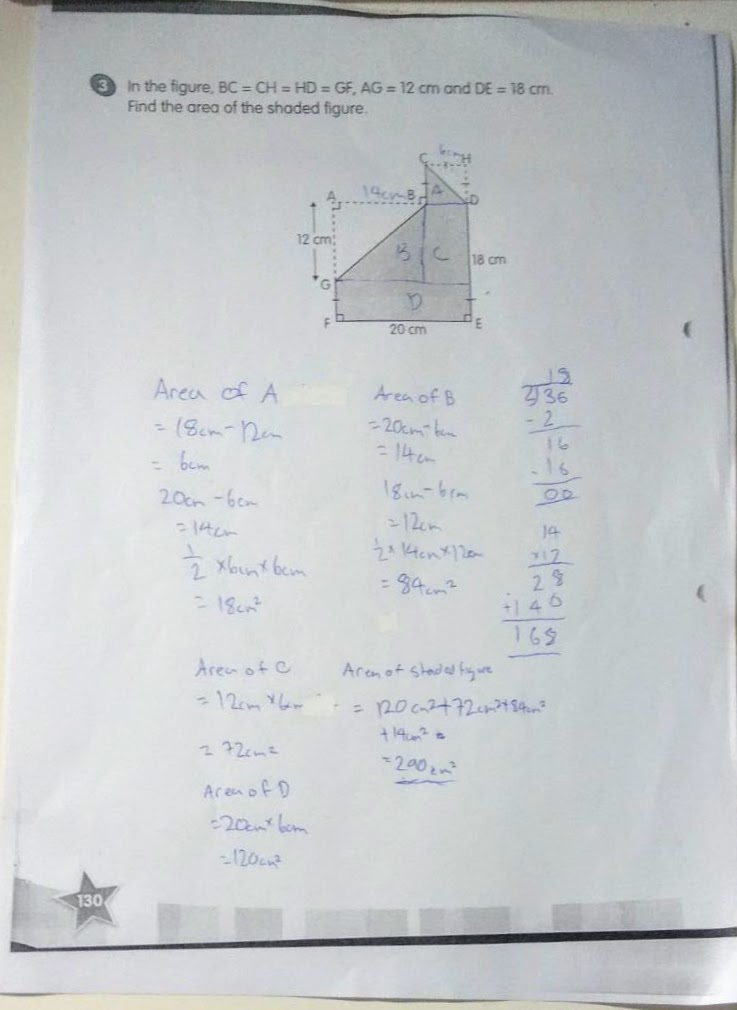 3 In the figure, BC = CH = HD = GF, AG = 12 cm and DE = 18 cm.
Find the area of the shaded figure.
6cm
C H
A 14cm B A D
12 cm B C 18 cm
G
D
F E
20 cm
Area of A
= 18cm - 12cm
= 6cm
20cm - 6cm
= 14cm
1/2 × 6cm × 6cm
= 18cm²
Area of B
= 20cm - 6cm
= 14cm
18cm - 6cm
= 12cm
1/2 × 14cm × 12cm
= 84cm²
18
2 36
- 2
16
- 16
00
14
×12
28
+140
168
Area of C
= 12cm × 6cm
= 72cm²
Area of D
= 20cm × 6cm
= 120cm²
Area of shaded figure
= 120cm² + 72cm² + 84cm²
+ 14cm²
= 290cm²
130